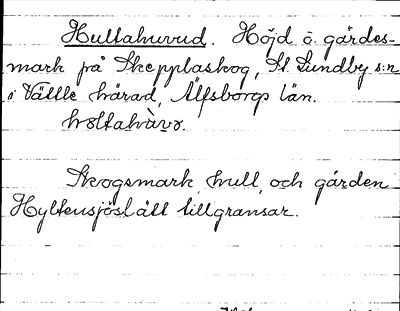 Hultahuvud. Höjd ö. gärdes-
mark på Skepplaskog, St. Lundby s:n
i Vättle härad, Älfsborgs län.
hòltahàvɔ.
Skogsmark, hull, och gården
Hyltensjöslätt tillgränsar.